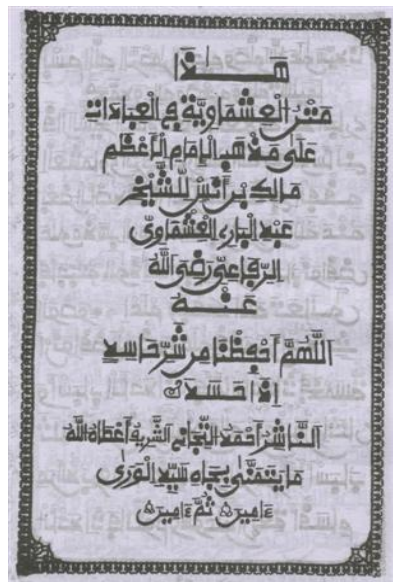 هٰذَا
مَتْنُ الْعَشْمَاوِيَّةِ فِي الْعِبَادَاتِ
عَلَى مَذْهَبِ الْإِمَامِ الْأَعْظَمِ
مَالِكِ بْنِ أَنَسٍ لِلشَّيْخِ
عَبْدِ الْبَارِي الْعَشْمَاوِيِّ
الرِّفَاعِيِّ رَضِيَ اللهُ
عَنْهُ
اَللَّهُمَّ احْفِظْنَا مِن شَرِّ حَاسِدٍ
إِذَا حَسَدَ
النَّاشِرُ أَحْمَدُ التِّجَانِي الشَّرِيفُ أَعْطَاهُ اللهُ
مَا يَتَمَنَّى بِجَاهِ سَيِّدِ الْوَرَى
ءَامِين ثُمَّ ءَامِين